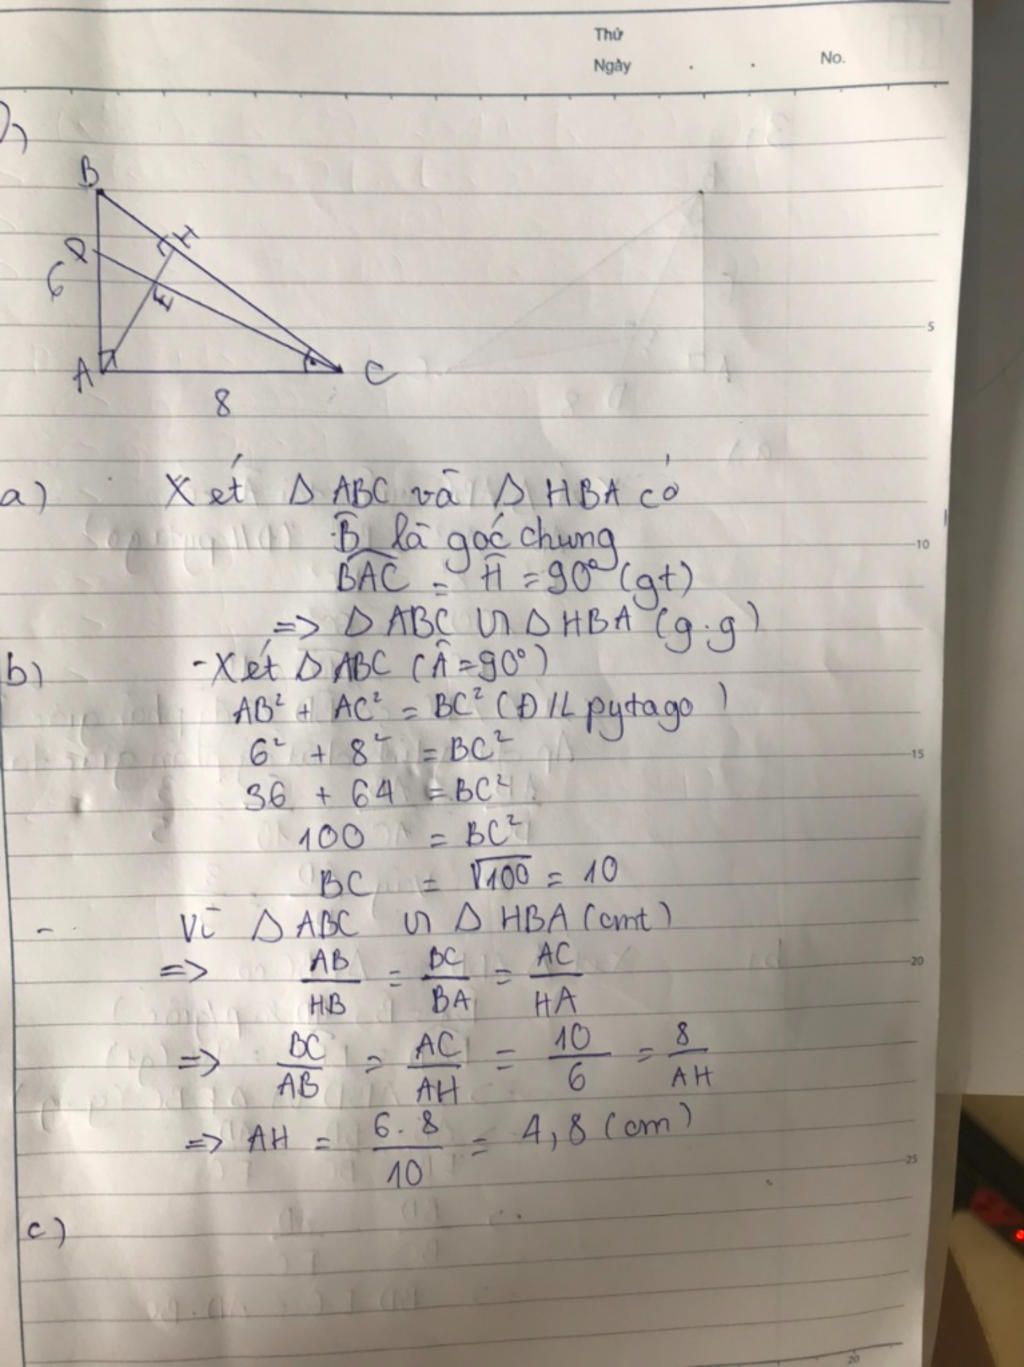 Thứ
Ngày . . No.
B
D H
6 E
A C
8
5
a) Xét Δ ABC và Δ HBA có
B̂ là góc chung
10
BAC = Ĥ = 90° (gt)
=> Δ ABC ᔕ Δ HBA (g.g)
b) - Xét Δ ABC (Â = 90°)
AB² + AC² = BC² (Đ/L pytago)
6² + 8² = BC²
15
36 + 64 = BC²
100 = BC²
BC = √100 = 10
- Vì Δ ABC ᔕ Δ HBA (cmt)
=> AB/HB = BC/BA = AC/HA
20
=> BC/AB = AC/AH = 10/6 = 8/AH
=> AH = 6.8/10 = 4,8 (cm)
25
c)